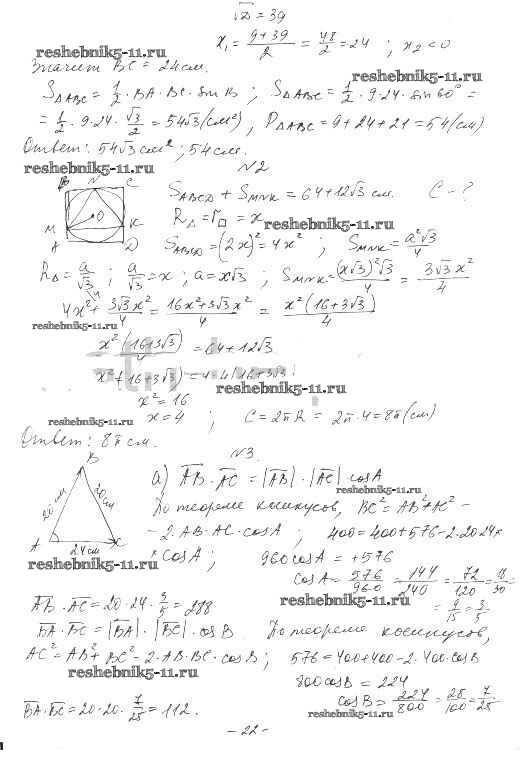 √D = 39
x₁ = (9+39)/2 = 48/2 = 24 ; x₂ < 0
reshebnik5-11.ru
Значит BC = 24 см.
S△ABC = 1/2 · BA · BC · sin B ; S△ABC = 1/2 · 9 · 24 · sin 60° =
= 1/2 · 9 · 24 · √3/2 = 54√3 (см²) , P△ABC = 9 + 24 + 21 = 54 (см)
Ответ: 54√3 см² ; 54 см.
reshebnik5-11.ru
N2
B N C
M O K
A D
S ABCD + S MNK = 64 + 12√3 см. C - ?
R△ = r□ = x reshebnik5-11.ru
S ABCD = (2x)² = 4x² ; S MNK = a²√3/4
R△ = a/√3 ; a/√3 = x ; a = x√3 ; S MNK = (x√3)²√3/4 = 3√3x²/4
4x² + 3√3x²/4 = 16x²+3√3x²/4 = x²(16+3√3)/4
reshebnik5-11.ru
x²(16+3√3)/4 = 64 + 12√3
x²(16+3√3) = 4·4(16+3√3)
reshebnik5-11.ru
x² = 16
x = 4 ; C = 2πR = 2π·4 = 8π (см)
reshebnik5-11.ru
Ответ: 8π см.
N3
B
20 см 20 см
A 24 см C
а) AB · AC = |AB| · |AC| cos A
reshebnik5-11.ru
По теореме косинусов, BC² = AB² + AC² -
- 2·AB·AC·cos A ; 400 = 400 + 576 - 2·20·24 ×
× cos A ; 960 cos A = + 576
reshebnik5-11.ru
cos A = 576/960 = 144/240 = 72/120 = 18/30 =
= 9/15 = 3/5
reshebnik5-11.ru
AB · AC = 20 · 24 · 3/5 = 288
BA · BC = |BA| · |BC| · cos B. По теореме косинусов,
AC² = AB² + BC² - 2·AB·BC·cos B ; 576 = 400 + 400 - 2·400 cos B
reshebnik5-11.ru
800 cos B = 224
cos B = 224/800 = 28/100 = 7/25
BA · BC = 20 · 20 · 7/25 = 112.
reshebnik5-11.ru
- 22 -